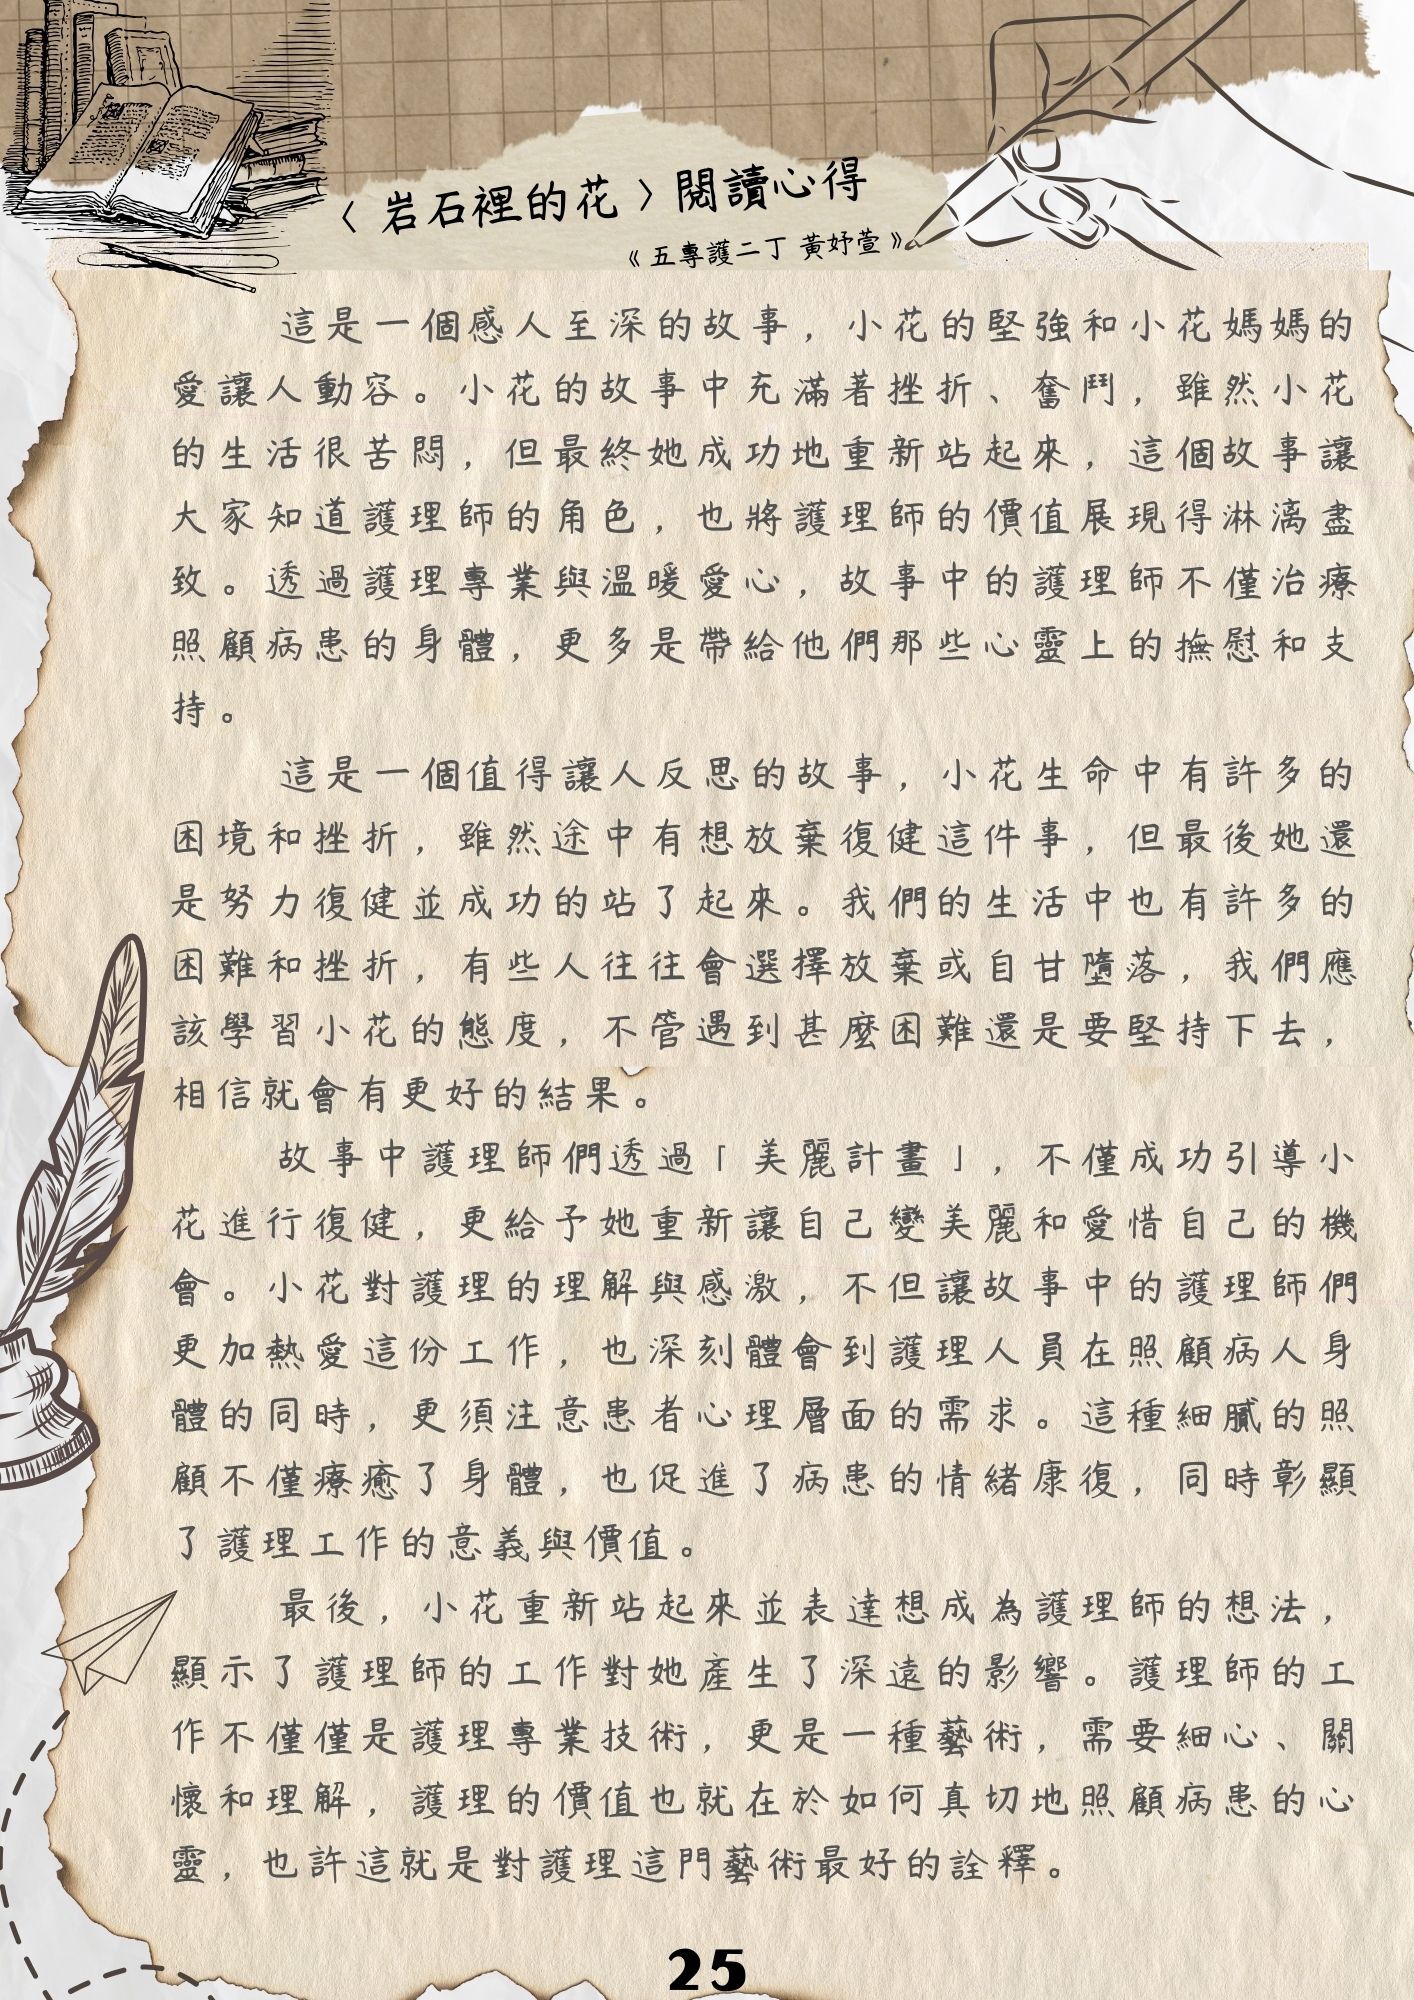 〈 岩石裡的花 〉閱讀心得
《 五專護二丁 黃妤萱 》
這是一個感人至深的故事，小花的堅強和小花媽媽的
愛讓人動容。小花的故事中充滿著挫折、奮鬥，雖然小花
的生活很苦悶，但最終她成功地重新站起來，這個故事讓
大家知道護理師的角色，也將護理師的價值展現得淋漓盡
致。透過護理專業與溫暖愛心，故事中的護理師不僅治療
照顧病患的身體，更多是帶給他們那些心靈上的撫慰和支
持。
這是一個值得讓人反思的故事，小花生命中有許多的
困境和挫折，雖然途中有想放棄復健這件事，但最後她還
是努力復健並成功的站了起來。我們的生活中也有許多的
困難和挫折，有些人往往會選擇放棄或自甘墮落，我們應
該學習小花的態度，不管遇到甚麼困難還是要堅持下去，
相信就會有更好的結果。
故事中護理師們透過「美麗計畫」，不僅成功引導小
花進行復健，更給予她重新讓自己變美麗和愛惜自己的機
會。小花對護理的理解與感激，不但讓故事中的護理師們
更加熱愛這份工作，也深刻體會到護理人員在照顧病人身
體的同時，更須注意患者心理層面的需求。這種細膩的照
顧不僅療癒了身體，也促進了病患的情緒康復，同時彰顯
了護理工作的意義與價值。
最後，小花重新站起來並表達想成為護理師的想法，
顯示了護理師的工作對她產生了深遠的影響。護理師的工
作不僅僅是護理專業技術，更是一種藝術，需要細心、關
懷和理解，護理的價值也就在於如何真切地照顧病患的心
靈，也許這就是對護理這門藝術最好的詮釋。
25